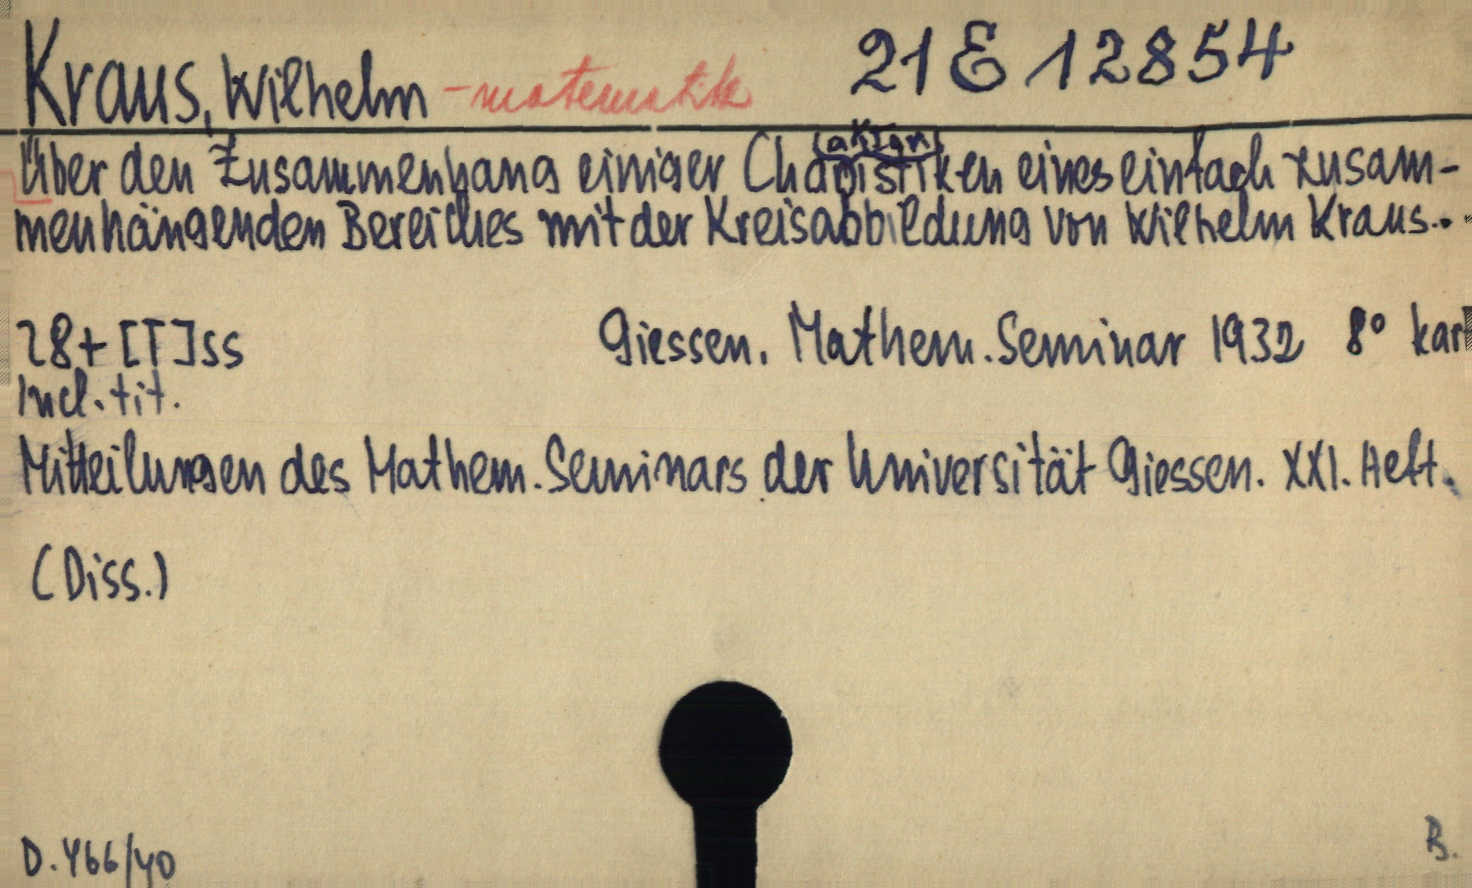 Kraus, Wilhelm - matematik 21 E 12854
Über den Zusammenhang einiger Charakteristiken eines einfach zusam-
menhängenden Bereiches mit der Kreisabbildung von Wilhelm Kraus..
28+[T]ss Giessen. Mathem. Seminar 1932 8° kart
Incl. tit.
Mitteilungen des Mathem. Seminars der Universität Giessen. XXI. Heft.
(Diss.)
D. 466/40 B.